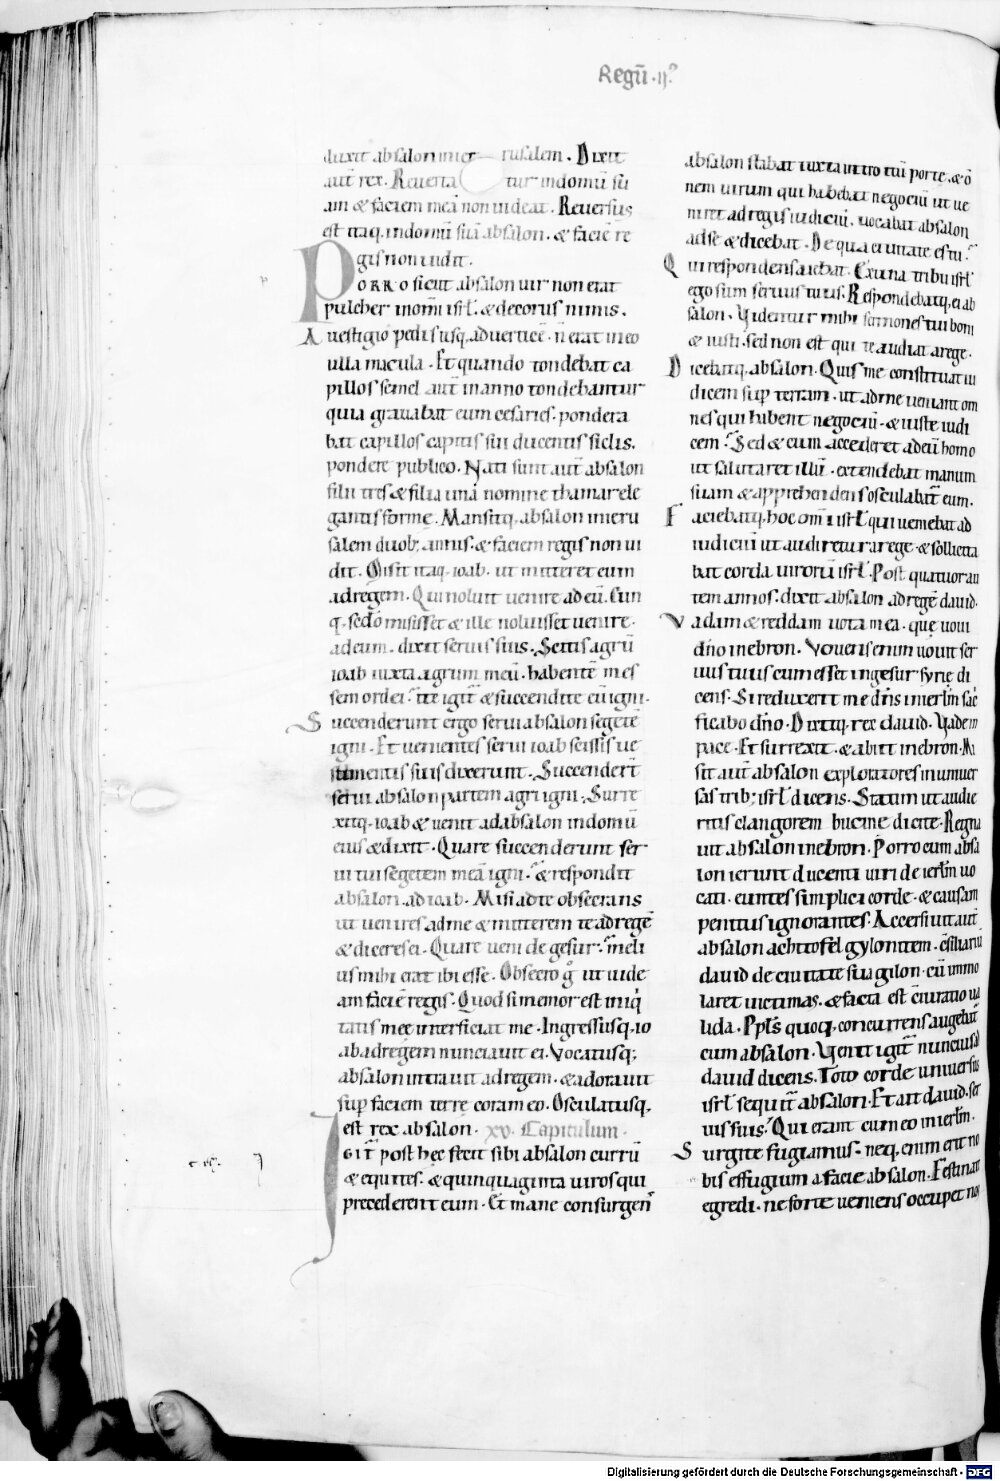 Regū · ii°
duxit absalon inier rusalem . Dixit
aūt rex . Reuerta tur in domū su
am & faciem meā non uideat . Reuersus
est itaq. in domū suā absalon . & faciē re
gis non uidit .
PORRO sicut absalon uir non erat
pulcher in om̄i isrł . & decorus nimis .
A uestigio pedis usq. ad uerticē . n̄ erat in eo
ulla macula . Et quando tondebat ca
pillos semel aūt in anno tondebantur
quia grauabat eum cesaries . pondera
bat capillos capitis sui ducentis siclis .
pondere publico . Nati sunt aūt absalon
filii tres & filia una nomine thamar ele
gantis forme . Mansitq. absalon inieru
salem duob; annis . & faciem regis non ui
dit . Misit itaq. ioab . ut mitteret eum
ad regem . Qui noluit uenire ad eū . Cun
q. sedo misisset & ille noluisset uenire .
ad eum . dixit seruis suis . Scitis agrū
ioab iuxta agrum meū . habentē mes
sem ordei . ite igit̄ & succendite eū igni .
Succenderunt ergo serui absalon segetē
igni . Et uenientes serui ioab scissis ue
stimentis suis dixerunt . Succendert̄
serui absalon partem agri igni . Surre
xitq. ioab & uenit ad absalon in domū
eius & dixit . Quare succenderunt ser
ui tui segetem meā igni . & respondit
absalon . ad ioab . Misi ad te obsecrans
ut uenires ad me & mitterem te ad regē
& diceres ei . Quare ueni de gesur . meli
us mihi erat ibi esse . Obsecro g° ut uide
am faciē regis . Quod si memor est iniq
tatis mee interficiat me . Ingressusq. io
ab ad regem nunciauit ei . Vocatusq;
absalon intrauit ad regem . & adorauit
sup faciem terre coram eo . Osculatusq.
est rex absalon . xv . Capitulum .
IGIT̄ post hec fecit sibi absalon currū
& equites . & quinquaginta uiros qui
precederent eum . Et mane consurgen̄
absalon stabat iuxta introitū porte . & ō
nem uirum qui habebat negociū ut ue
niret ad regis iudiciū . uocabat absalon
ad se & dicebat . De qua ciuitate es tu .
Qui respondens aiebat . Ex una tribu isrł
ego sum seruus tuus . Respondebatq. ei ab
salon . Videntur mihi sermones tui boni
& iusti . sed non est qui te audiat a rege .
Dicebatq. absalon . Quis me constituat iu
dicem sup terram . ut ad me ueniant om
nes qui habent negociū . & iuste iudi
cem . Sed & cum accederet ad eū homo
ut salutaret illū . extendebat manum
suam & apprehendens osculabat̄ eum .
Faciebatq. hoc om̄i isrł qui ueniebat ad
iudiciū ut audiretur a rege . & sollicita
bat corda uirorū isrł . Post quatuor au
tem annos . dixit absalon ad regē dauid .
Vadam & reddam uota mea . que uoui
dño in ebron . Vouens enim uouit ser
uus tuus cum esset in gesur syrie di
cens . Si reduxerit me dñs in ierłm sac̄
ficabo dño . Dixitq. rex dauid . Vade in
pace . Et surrexit . & abiit in ebron . Mi
sit aūt absalon exploratores in uniuer
sas trib; isrł dicens . Statim ut audie
ritis clangorem bucine dicite . Regna
uit absalon in ebron . Porro cum absa
lon ierunt ducenti uiri de ierłm uo
cati . euntes simplici corde . & causam
penitus ignorantes . Accersiuit aūt
absalon achitofel gylonitem . c̄siliariū
dauid de ciuitate sua gilon . cū immo
laret uictimas . & facta est c̄iuratio ua
lida . Pplś quoq. concurrens augebat̄
cum absalon . Venit igit̄ nuncius ad
dauid dicens . Toto corde uniuersus
isrł sequit̄ absalon . Et ait dauid . ser
uis suis . Qui erant cum eo in ierłm .
Surgite fugiamus . neq. enim erit no
bis effugium a facie absalon . Festinate
egredi . ne forte ueniens occupet nos